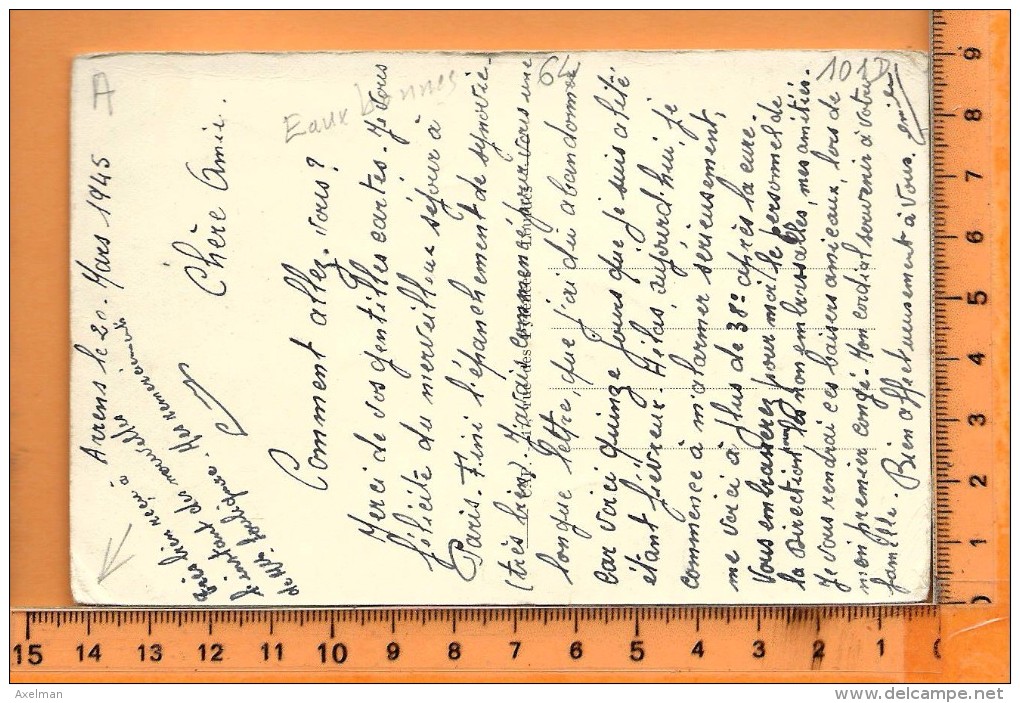 A
Arrens le 20. Mars 1945
Chère Amie.
Eaux bonnes
64
101D
Comment allez-vous?
Merci de vos gentilles cartes. Je vous
félicite du merveilleux séjour à
Paris. Fini l'épanchement de synovie.
(très bien). J'avais commencé pour vous une
longue lettre, que j'ai dû abandonner
car voici quinze jours que je suis alité
étant fiévreux. Hélas, aujourd'hui, je
commence à m'alarmer sérieusement,
me voici à plus de 38° après la cure.
Vous embrasserez pour moi le personnel de
la Direction, les non embrassables, mes amitiés.
Je vous rendrai ces baisers amicaux, lors de
mon premier congé. Mon cordial souvenir à votre
famille. Bien affectueusement à vous.
Très bien reçu à
l'instant des nouvelles
de Mlle. Mes remerciements
15 14 13 12 11 10 9 8 7 6 5 4 3 2 1
9
8
7
6
5
4
3
2
1
Axelman
www.delcampe.net